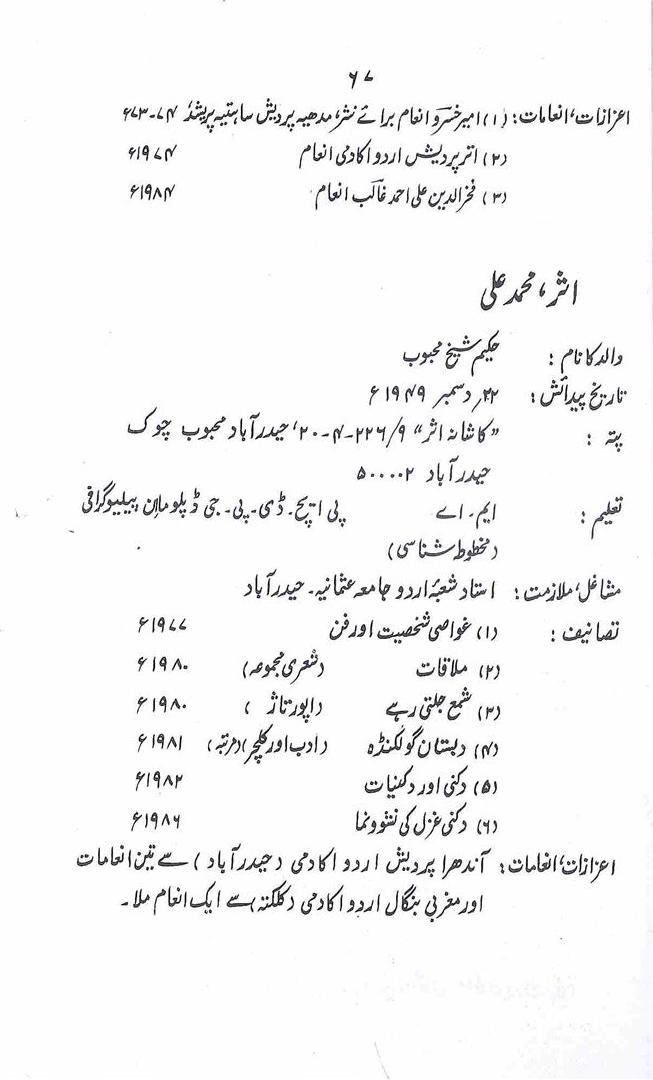 ۶۷
اعزازات، انعامات: (۱) امیر خسرو انعام برائے نثر، مدھیہ پردیش ساہتیہ پریشد ۷۴-۷۳ء
(۲) اتر پردیش اردو اکادمی انعام ۱۹۷۴ء
(۳) فخر الدین علی احمد غالب انعام ۱۹۸۴ء
اثر، محمد علی
والد کا نام : حکیم شیخ محبوب
تاریخ پیدائش : ۲۲؍ دسمبر ۱۹۴۹ء
پتہ : “کاشانہ اثر” ۲۲۶/۹-۴-۲۰، حیدرآباد محبوب چوک
حیدرآباد ۵۰۰۰۰۲
تعلیم : ایم۔ اے پی ایچ۔ ڈی۔ پی۔ جی ڈپلوما ان ببلیوگرافی
(مخطوط شناسی)
مشاغل، ملازمت : استاد شعبۂ اردو جامعہ عثمانیہ۔ حیدرآباد
تصانیف : (۱) غواصی شخصیت اور فن ۱۹۷۷ء
(۲) ملاقات (شعری مجموعہ) ۱۹۸۰ء
(۳) شمع جلتی رہے (رپورتاژ) ۱۹۸۰ء
(۴) دبستان گولکنڈہ (ادب اور کلچر) (مرتبہ) ۱۹۸۱ء
(۵) دکنی اور دکنیات ۱۹۸۲ء
(۶) دکنی غزل کی نشوونما ۱۹۸۶ء
اعزازات، انعامات : آندھرا پردیش اردو اکادمی (حیدرآباد) سے تین انعامات
اور مغربی بنگال اردو اکادمی (کلکتہ) سے ایک انعام ملا۔